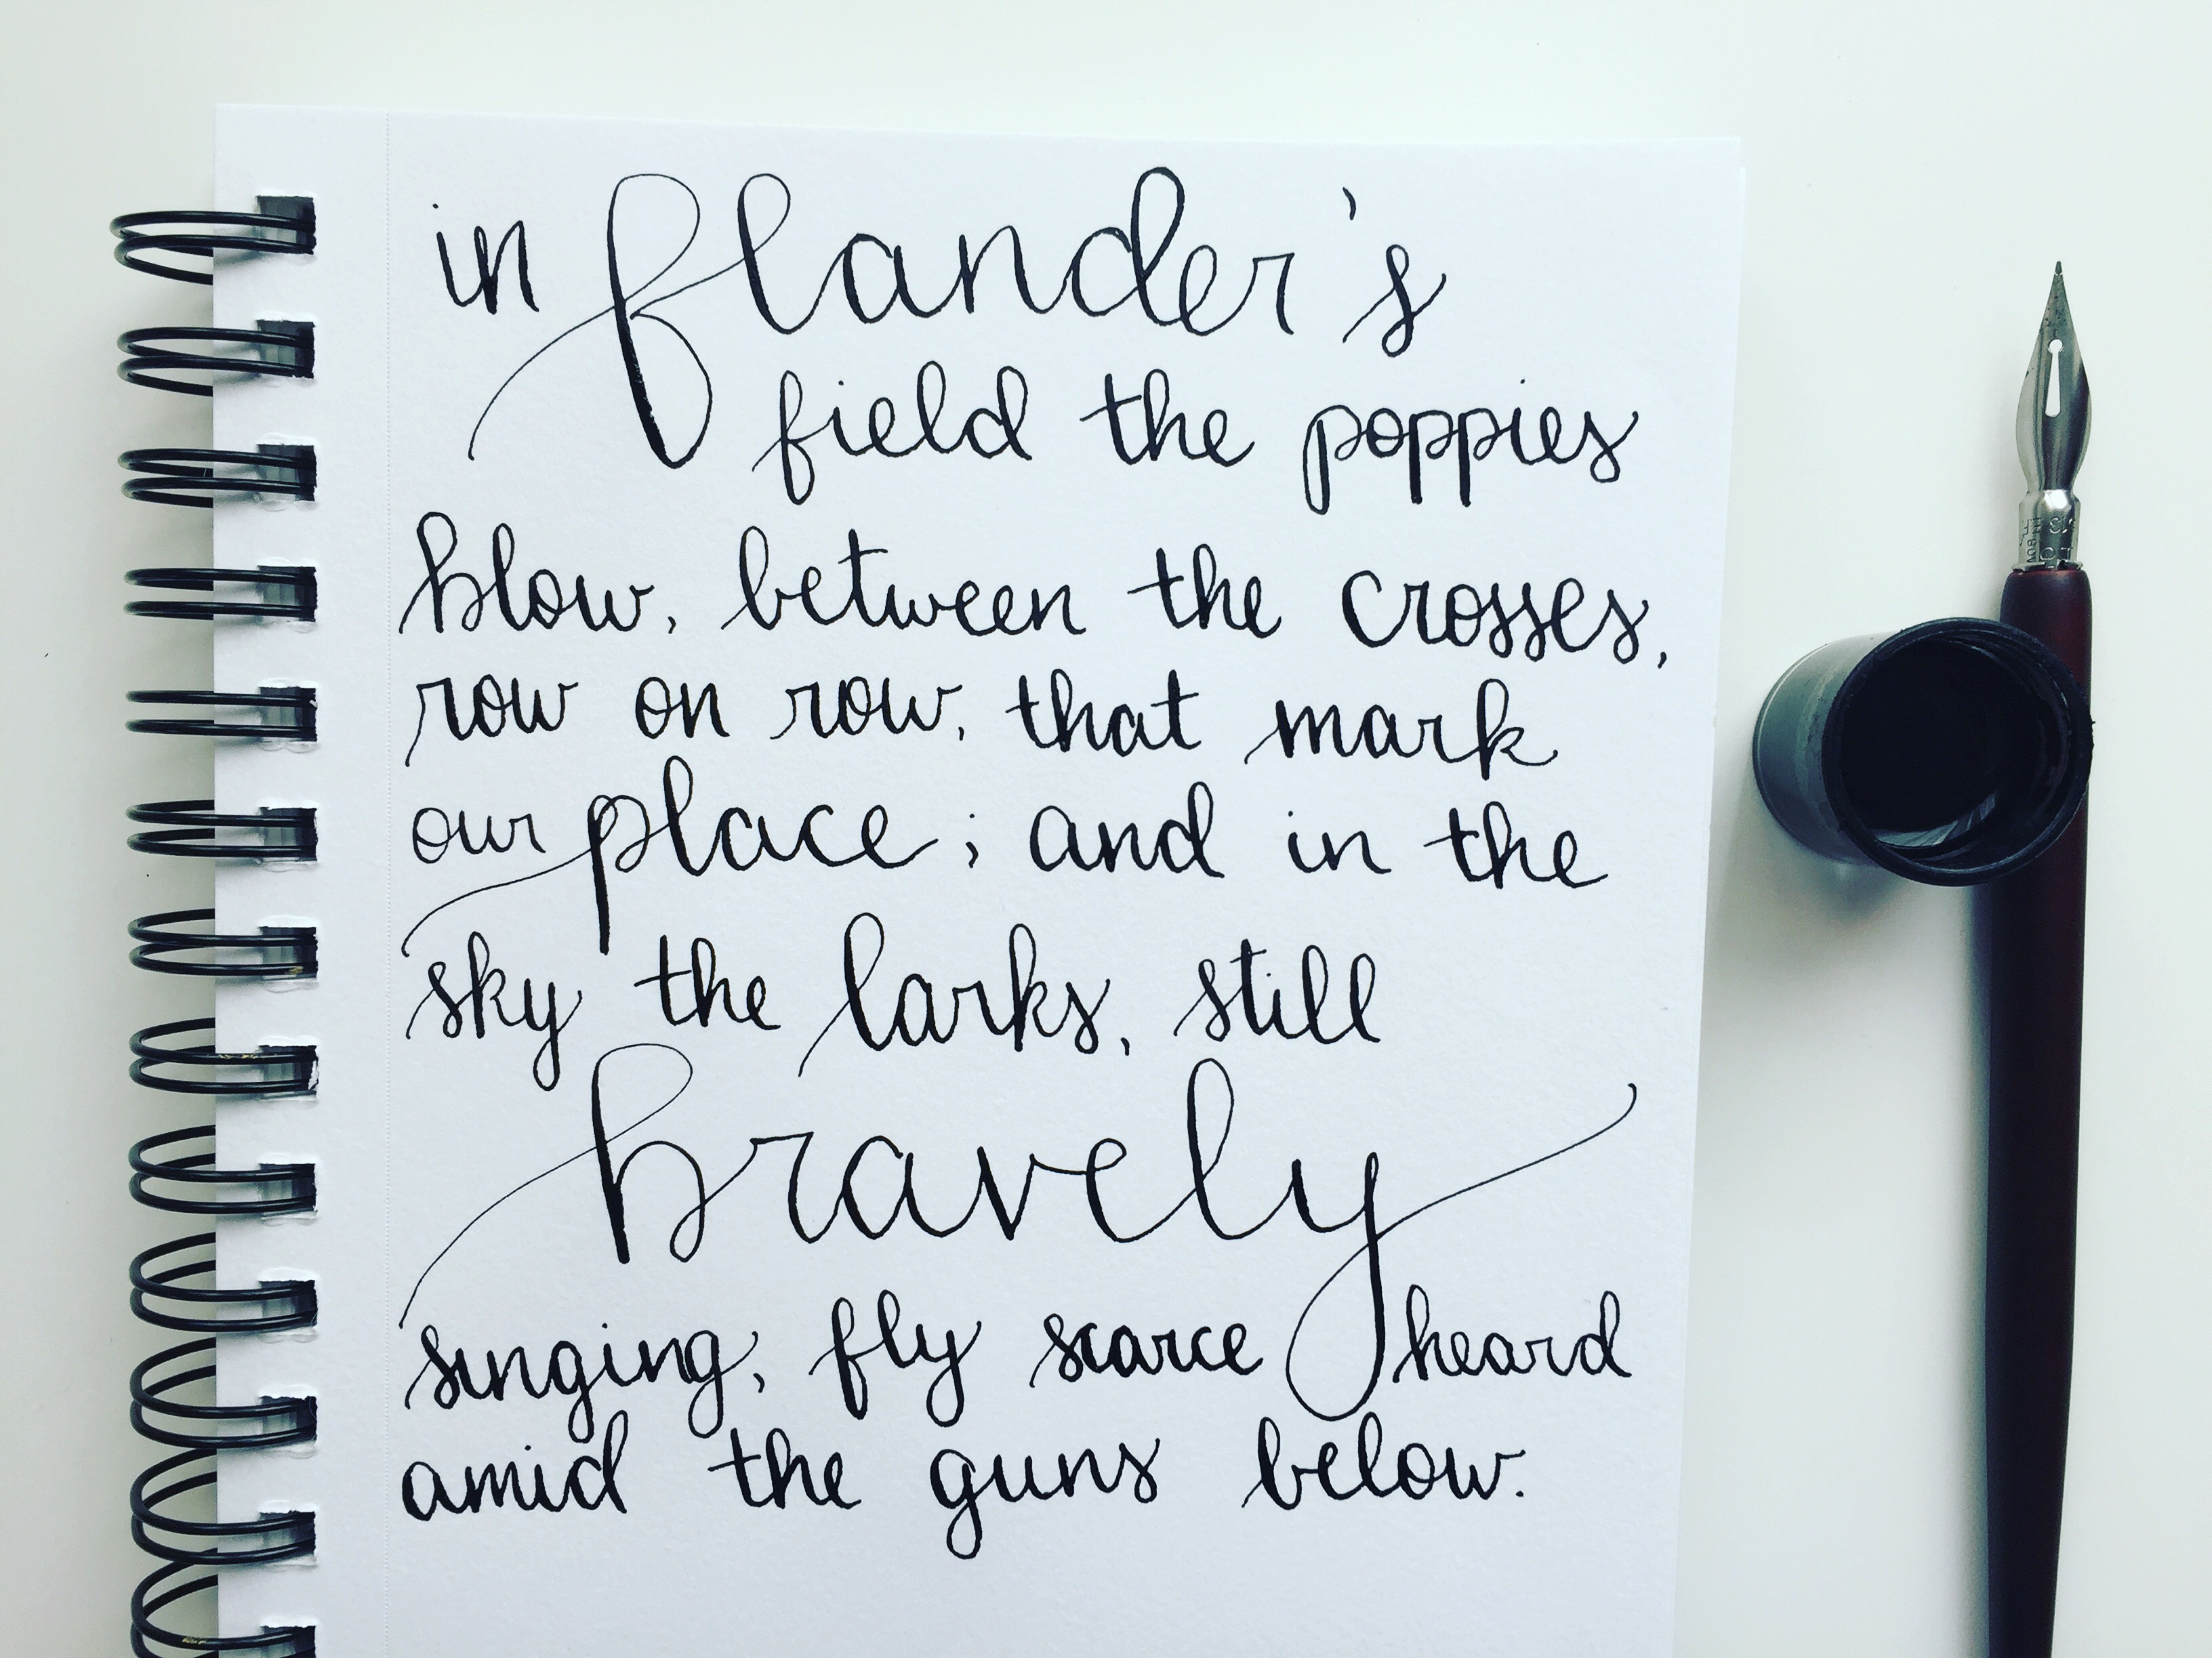 in flander's
field the poppies
blow, between the crosses,
row on row, that mark
our place; and in the
sky the larks, still
bravely
singing, fly scarce heard
amid the guns below.